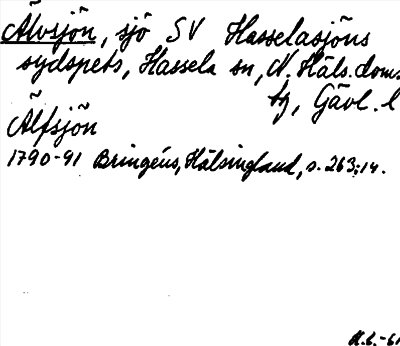 Älvsjön, sjö SV Hasselasjöns
sydspets, Hassela sn, N. Häls. doms.
tg, Gävl. l
Älfsjön
1790-91 Bringéus, Hälsingland, s. 263; 14.